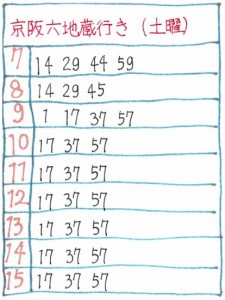 京阪六地蔵行き（土曜）
7 14 29 44 59
8 14 29 45
9 1 17 37 57
10 17 37 57
11 17 37 57
12 17 37 57
13 17 37 57
14 17 37 57
15 17 37 57